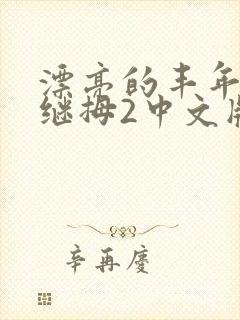 漂亮的丰年
继拇2中文版
辛再廖